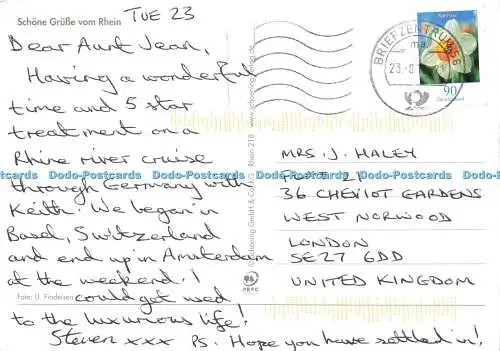 Schöne Grüße vom Rhein
TUE 23
Dear Aunt Jean,
Having a wonderful
time and 5 star
treatment on a
Rhine river cruise
through Germany with
Keith. We began in
Basel, Switzerland
and end up in Amsterdam
at the weekend. I
could get used
to the luxurious life!
Steven xxx PS. Hope you have settled in!
Foto: U. Findeisen
BRIEFZENTRUM 56
23.-8
90
Deutschland
MRS. J. HALEY
FLAT 21
36 CHEVIOT GARDENS
WEST NORWOOD
LONDON
SE27 6DD
UNITED KINGDOM
PEFC
Dodo-Postcards Dodo-Postcards Dodo-Postcards Dodo-Postcards